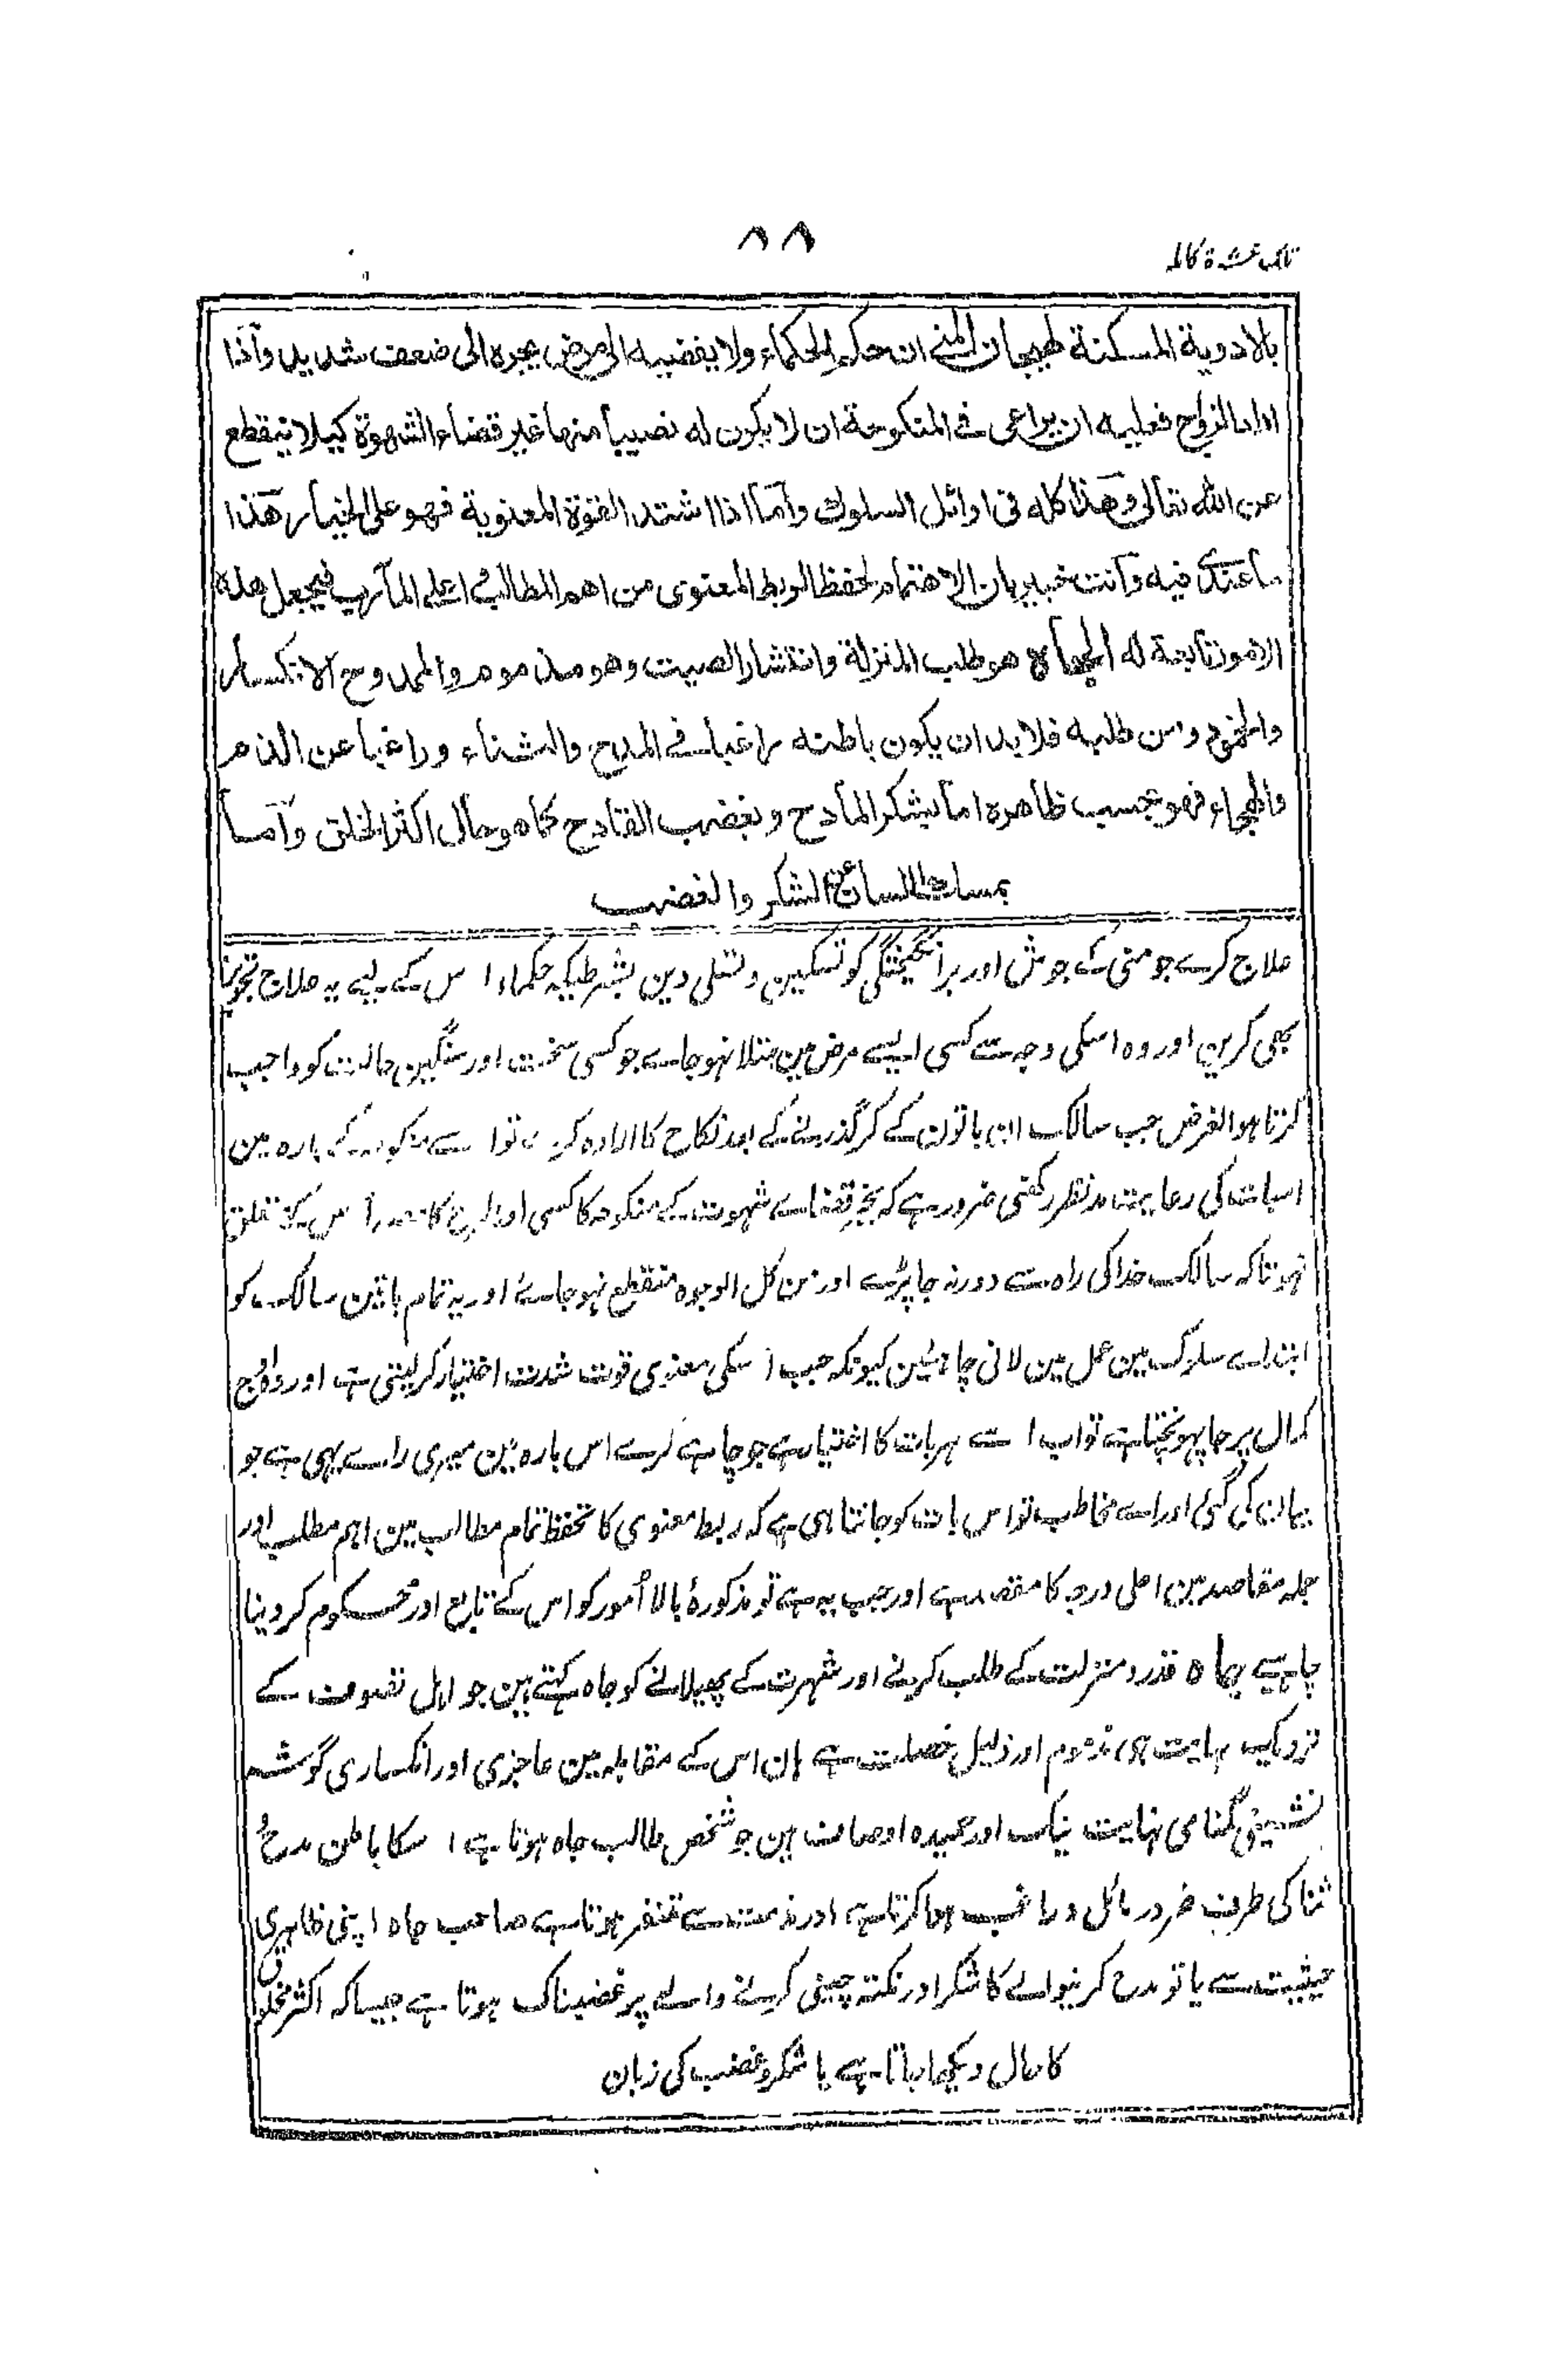 ٨٨
تلک عشرة کاملہ
بالادوية المسكنة لهيجان المنى ان حكم الحكماء ولا يفضيه الى مرض يجره الى ضعف شديد واذا
اراد الزواج فعليه ان يراعى فى المنكوحة ان لا يكون له نصيبا منها غير قضاء الشهوة كيلا ينقطع
عن الله تعالى وهذا كله فى اوائل السلوك وأما اذا اشتد القوة المعنوية فهو على الخيار هذا
ما عندى فيه وأنت خبير بان الاهتمام لحفظ الربط المعنوى من اهم المطالب واعلى المآرب فيجعل هذه
الامور تابعة له الجاه هو طلب المنزلة وانتشار الصيت وهو مذموم والممدوح الانكسار
والخمول ومن طلبه فلا بد ان يكون باطنه راغبا فى المدح والثناء وراغبا عن الذم
والهجاء فهو بحسب ظاهره اما يشكر المادح ويغضب القادح كما هو حال اكثر الخلق وأما
يمسك اللسان عن الشكر والغضب
علاج کرے جو منی کے جوش اور برانگیختگی کو تسکین و تسلی دین بشرطیکہ حکماء اس کے لیے یہ علاج تجویز
بھی کرین اور وہ اسکی وجہ سے کسی ایسے مرض مین مبتلا نہو جاے جو کسی سخت اور سنگین حالت کو واجب
کرتا ہو الغرض جب سالک ان باتون کے کر گذرنے کے بعد نکاح کا ارادہ کرے تو اسے منکوحہ کے بارہ مین
اسبات کی رعایت مدنظر رکھنی ضرور ہے کہ بجز قضاے شہوت کے منکوحہ کا کسی اور طرح کا حصہ اس کے متعلق
نہو تاکہ سالک خدا کی راہ سے دور نہ جا پڑے اور من کل الوجوہ منقطع نہو جاے اور یہ تمام باتین سالک کو
ابتداے سلوک مین عمل مین لانی چاہئین کیونکہ جب اسکی معنوی قوت شدت اختیار کر لیتی ہے اور وہ اوج
کمال پر جا پہونچتا ہے تو اب اسے ہر بات کا اختیار ہے جو چاہے کرے اس بارہ مین میری راے یہی ہے جو
بیان کی گئی اور اے مخاطب تو اس بات کو جانتا ہی ہے کہ ربط معنوی کا تحفظ تمام مطالب مین اہم مطلب اور
جملہ مقاصد مین اعلی درجہ کا مقصد ہے اور جب یہ ہے تو مذکورۂ بالا اُمور کو اس کے تابع اور محکوم کر دینا
چاہیے جاہ قدر و منزلت کے طلب کرنے اور شہرت کے پھیلانے کو جاہ کہتے ہین جو اہل تصوف کے
نزدیک نہایت ہی مذموم اور ذلیل خصلت ہے ہان اس کے مقابلہ مین عاجزی اور انکساری گوشہ
نشینی گمنامی نہایت نیک اور حمیدہ اوصاف ہین جو شخص طالب جاہ ہوتا ہے اسکا باطن مدح و
ثنا کی طرف ضرور مائل و راغب ہوا کرتا ہے اور مذمت سے متنفر ہوتا ہے صاحب جاہ اپنی ظاہری
حیثیت سے یا تو مدح کرنیوالے کا شکر اور نکتہ چینی کرنے والے پر غضبناک ہوتا ہے جیسا کہ اکثر مخلوق
کا حال دیکھا جاتا ہے یا شکر و غضب کی زبان